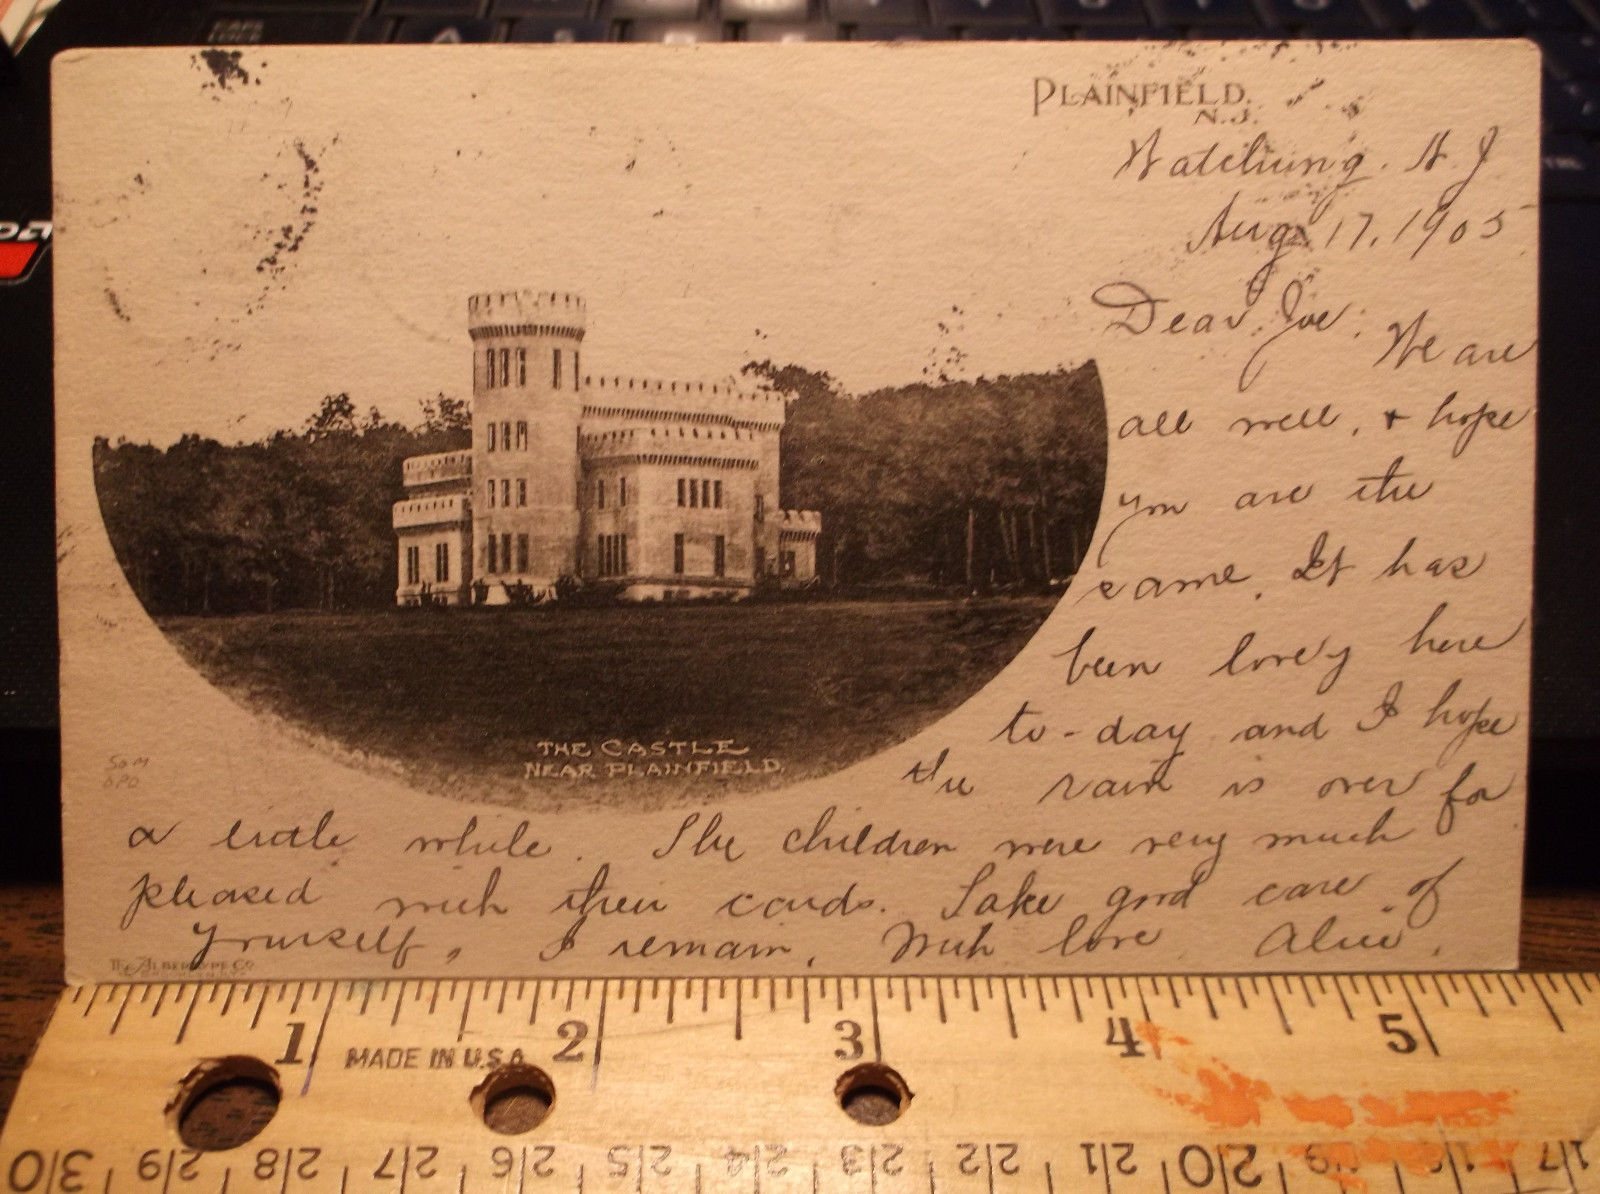 PLAINFIELD,
N.J.
Watchung. N J
Aug 17, 1905
Dear Joe: We are
all well, + hope
you are the
same. It has
been lovely here
to-day and I hope
the rain is over for
a little while. The children were very much
pleased with their cards. Take good care of
yourself, I remain, With love Alice.
THE CASTLE
NEAR PLAINFIELD.
THE ALBERTYPE CO
1 2 3 4 5
MADE IN U.S.A.
30 29 28 27 26 25 24 23 22 21 20 19 17